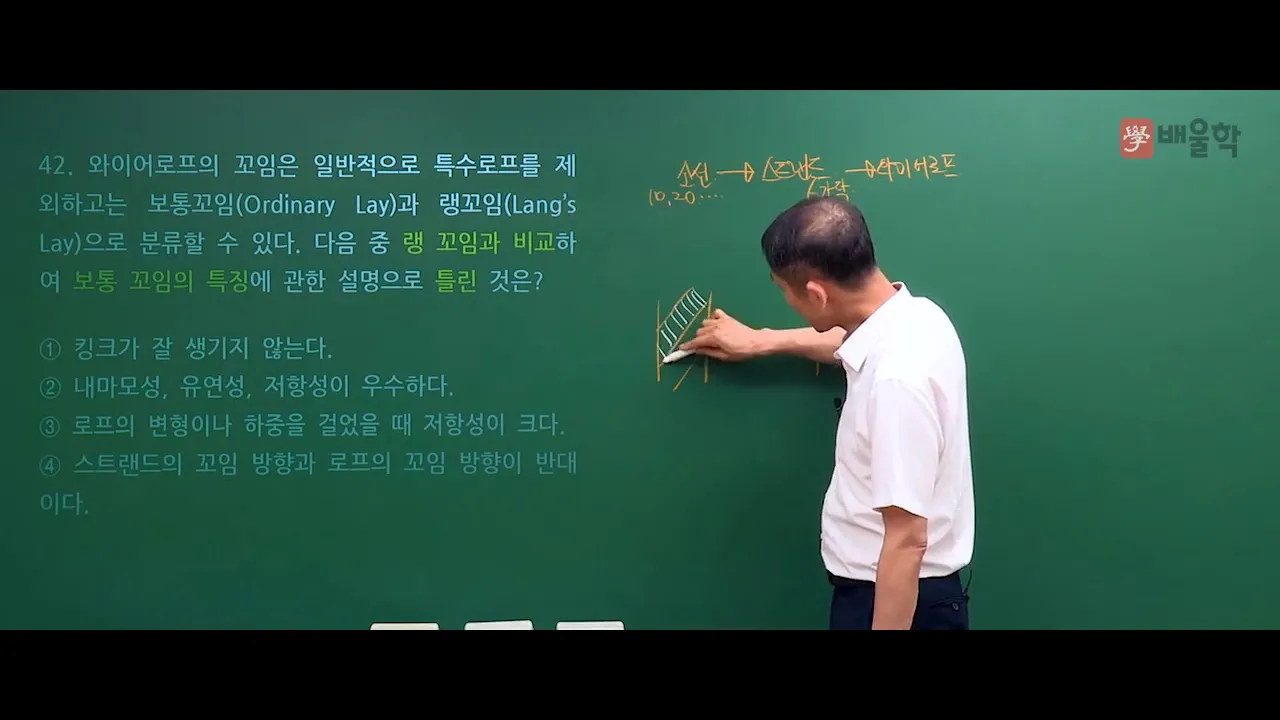 學 배울학
42. 와이어로프의 꼬임은 일반적으로 특수로프를 제
외하고는 보통꼬임(Ordinary Lay)과 랭꼬임(Lang's
Lay)으로 분류할 수 있다. 다음 중 랭 꼬임과 비교하
여 보통 꼬임의 특징에 관한 설명으로 틀린 것은?
① 킹크가 잘 생기지 않는다.
② 내마모성, 유연성, 저항성이 우수하다.
③ 로프의 변형이나 하중을 걸었을 때 저항성이 크다.
④ 스트랜드의 꼬임 방향과 로프의 꼬임 방향이 반대
이다.
소선 → 스트랜드 → 와이어로프
10, 20 ····